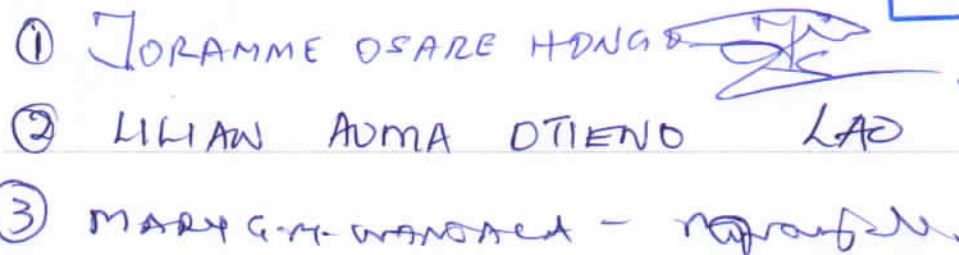 ① JORAMME OSARE HONGO
② LILIAN AUMA OTIENO LAO
③ MARY G.M. WANDALA -